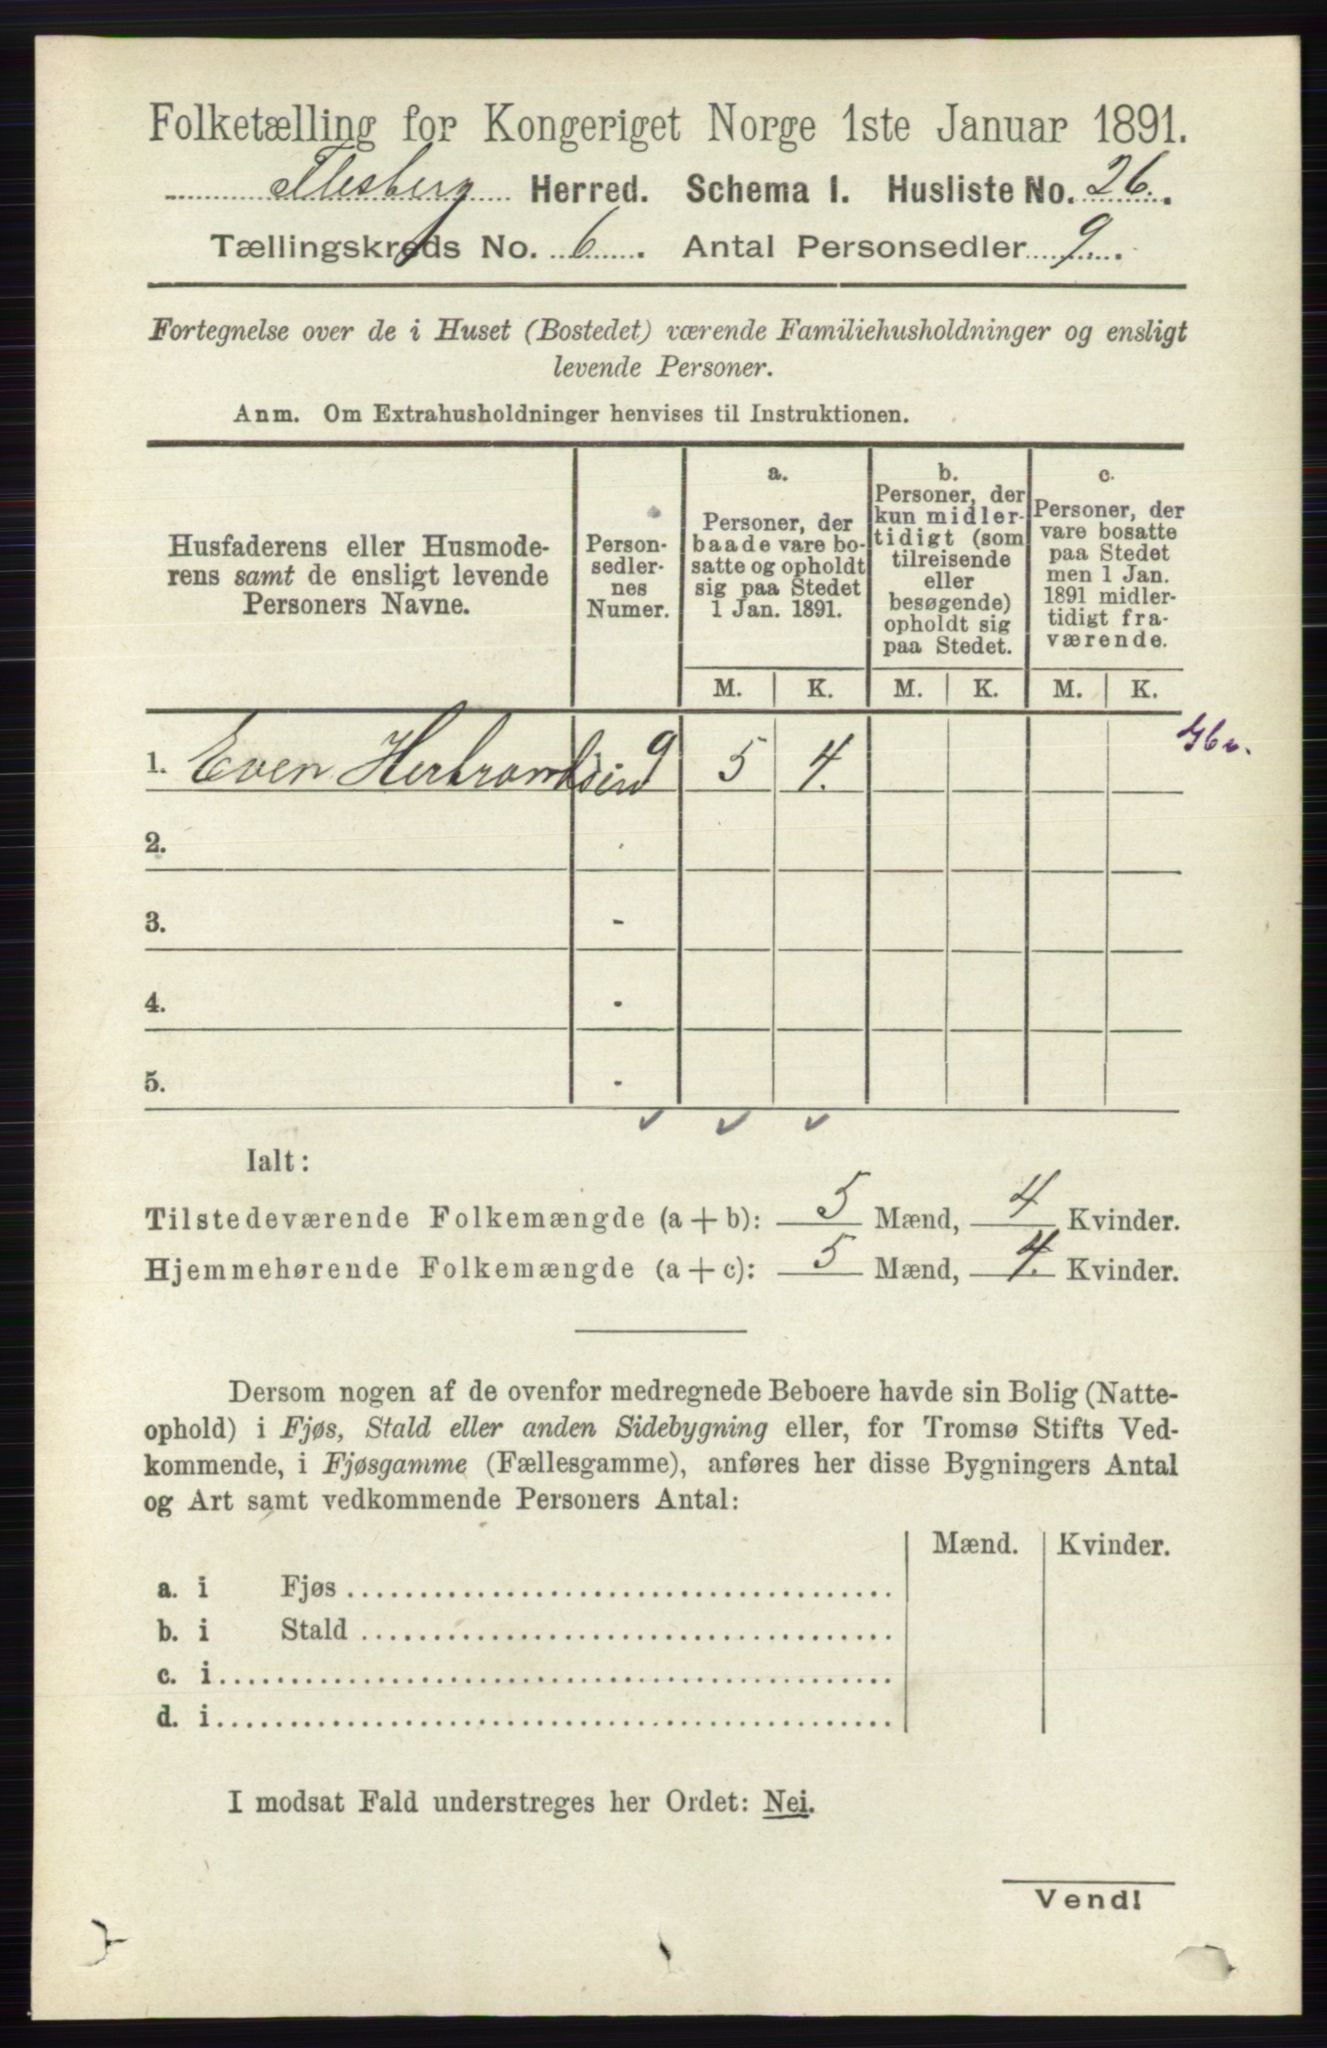 Folketælling for Kongeriget Norge 1ste Januar 1891.
Flesberg Herred. Schema 1. Husliste No. 26.
Tællingskreds No. 6. Antal Personsedler 9.
Fortegnelse over de i Huset (Bostedet) værende Familiehusholdninger og ensligt
levende Personer.
Anm. Om Extrahusholdninger henvises til Instruktionen.
Husfaderens eller Husmode-
rens samt de ensligt levende
Personers Navne.
Person-
sedler-
nes
Numer.
a.
Personer, der
baade vare bo-
satte og opholdt
sig paa Stedet
1 Jan. 1891.
b.
Personer, der
kun midler-
tidigt (som
tilreisende
eller
besøgende)
opholdt sig
paa Stedet.
c.
Personer, der
vare bosatte
paa Stedet
men 1 Jan.
1891 midler-
tidigt fra-
værende.
M. K. M. K. M. K.
1. Even Herbrandsen 9 5 4.
2.
3. -
4. -
5. -
Ialt:
Tilstedeværende Folkemængde (a + b): 5 Mænd, 4 Kvinder.
Hjemmehørende Folkemængde (a + c): 5 Mænd, 4. Kvinder.
Dersom nogen af de ovenfor medregnede Beboere havde sin Bolig (Natte-
ophold) i Fjøs, Stald eller anden Sidebygning eller, for Tromsø Stifts Ved-
kommende, i Fjøsgamme (Fællesgamme), anføres her disse Bygningers Antal
og Art samt vedkommende Personers Antal:
Mænd. Kvinder.
a. i Fjøs
b. i Stald
c. i
d. i
I modsat Fald understreges her Ordet: Nei.
Vend!